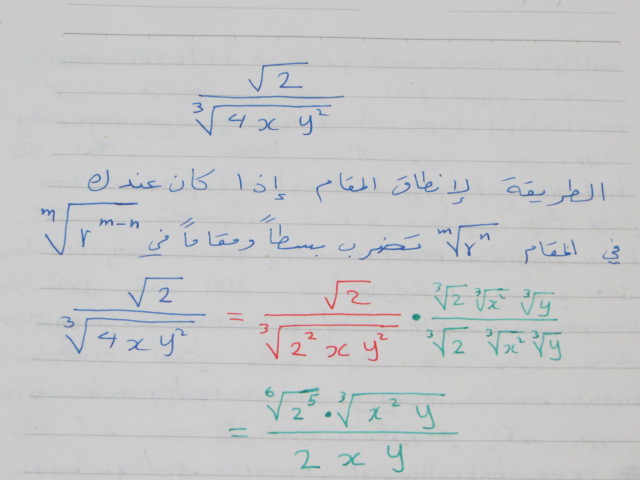 √2 / ∛(4 x y²)
الطريقة لإنطاق المقام إذا كان عندك
في المقام ᵐ√(r^n) تضرب بسطاً ومقاماً في ᵐ√(r^(m-n))
√2 / ∛(4 x y²) = √2 / ∛(2² x y²) · ∛2 ∛x² ∛y / ∛2 ∛x² ∛y
= ⁶√(2⁵) · ∛(x² y) / 2 x y